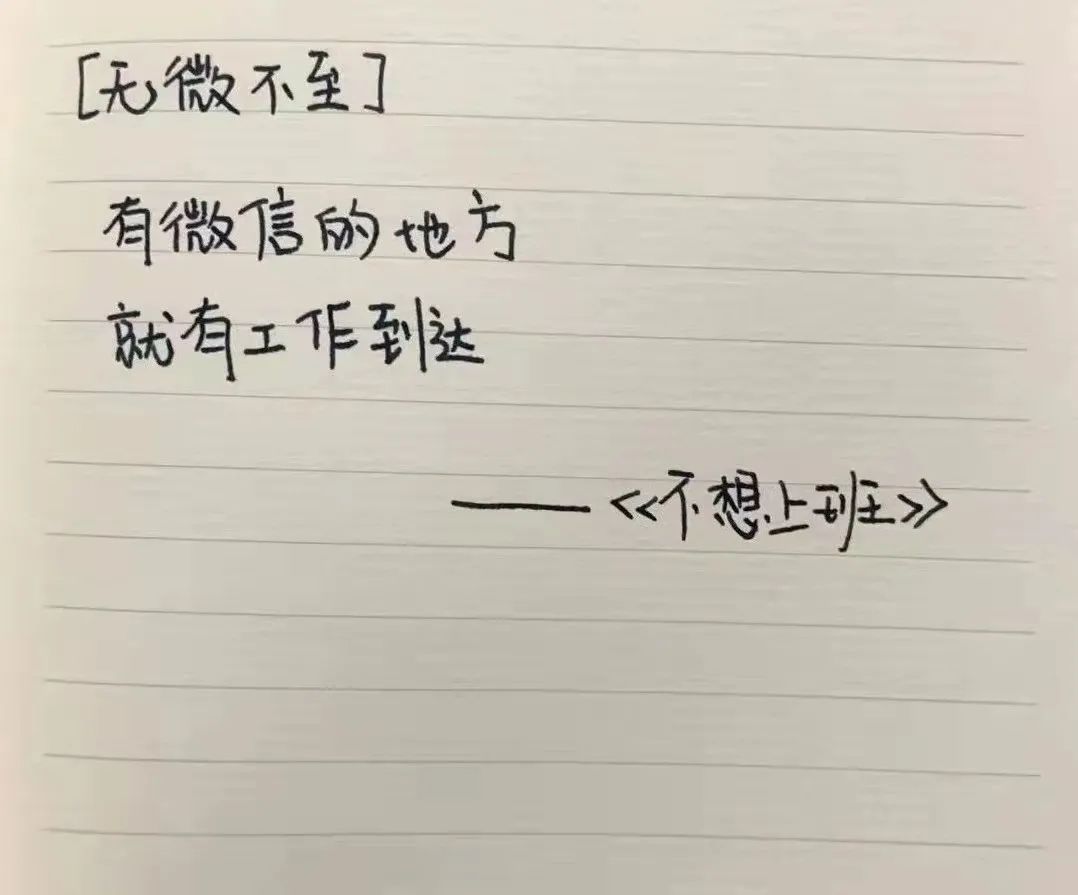 [无微不至]
有微信的地方
就有工作到达
——<<不想上班>>